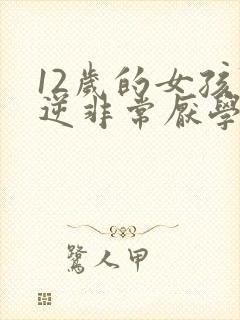 12歲的女孩
逆非常厭學
鷺人甲